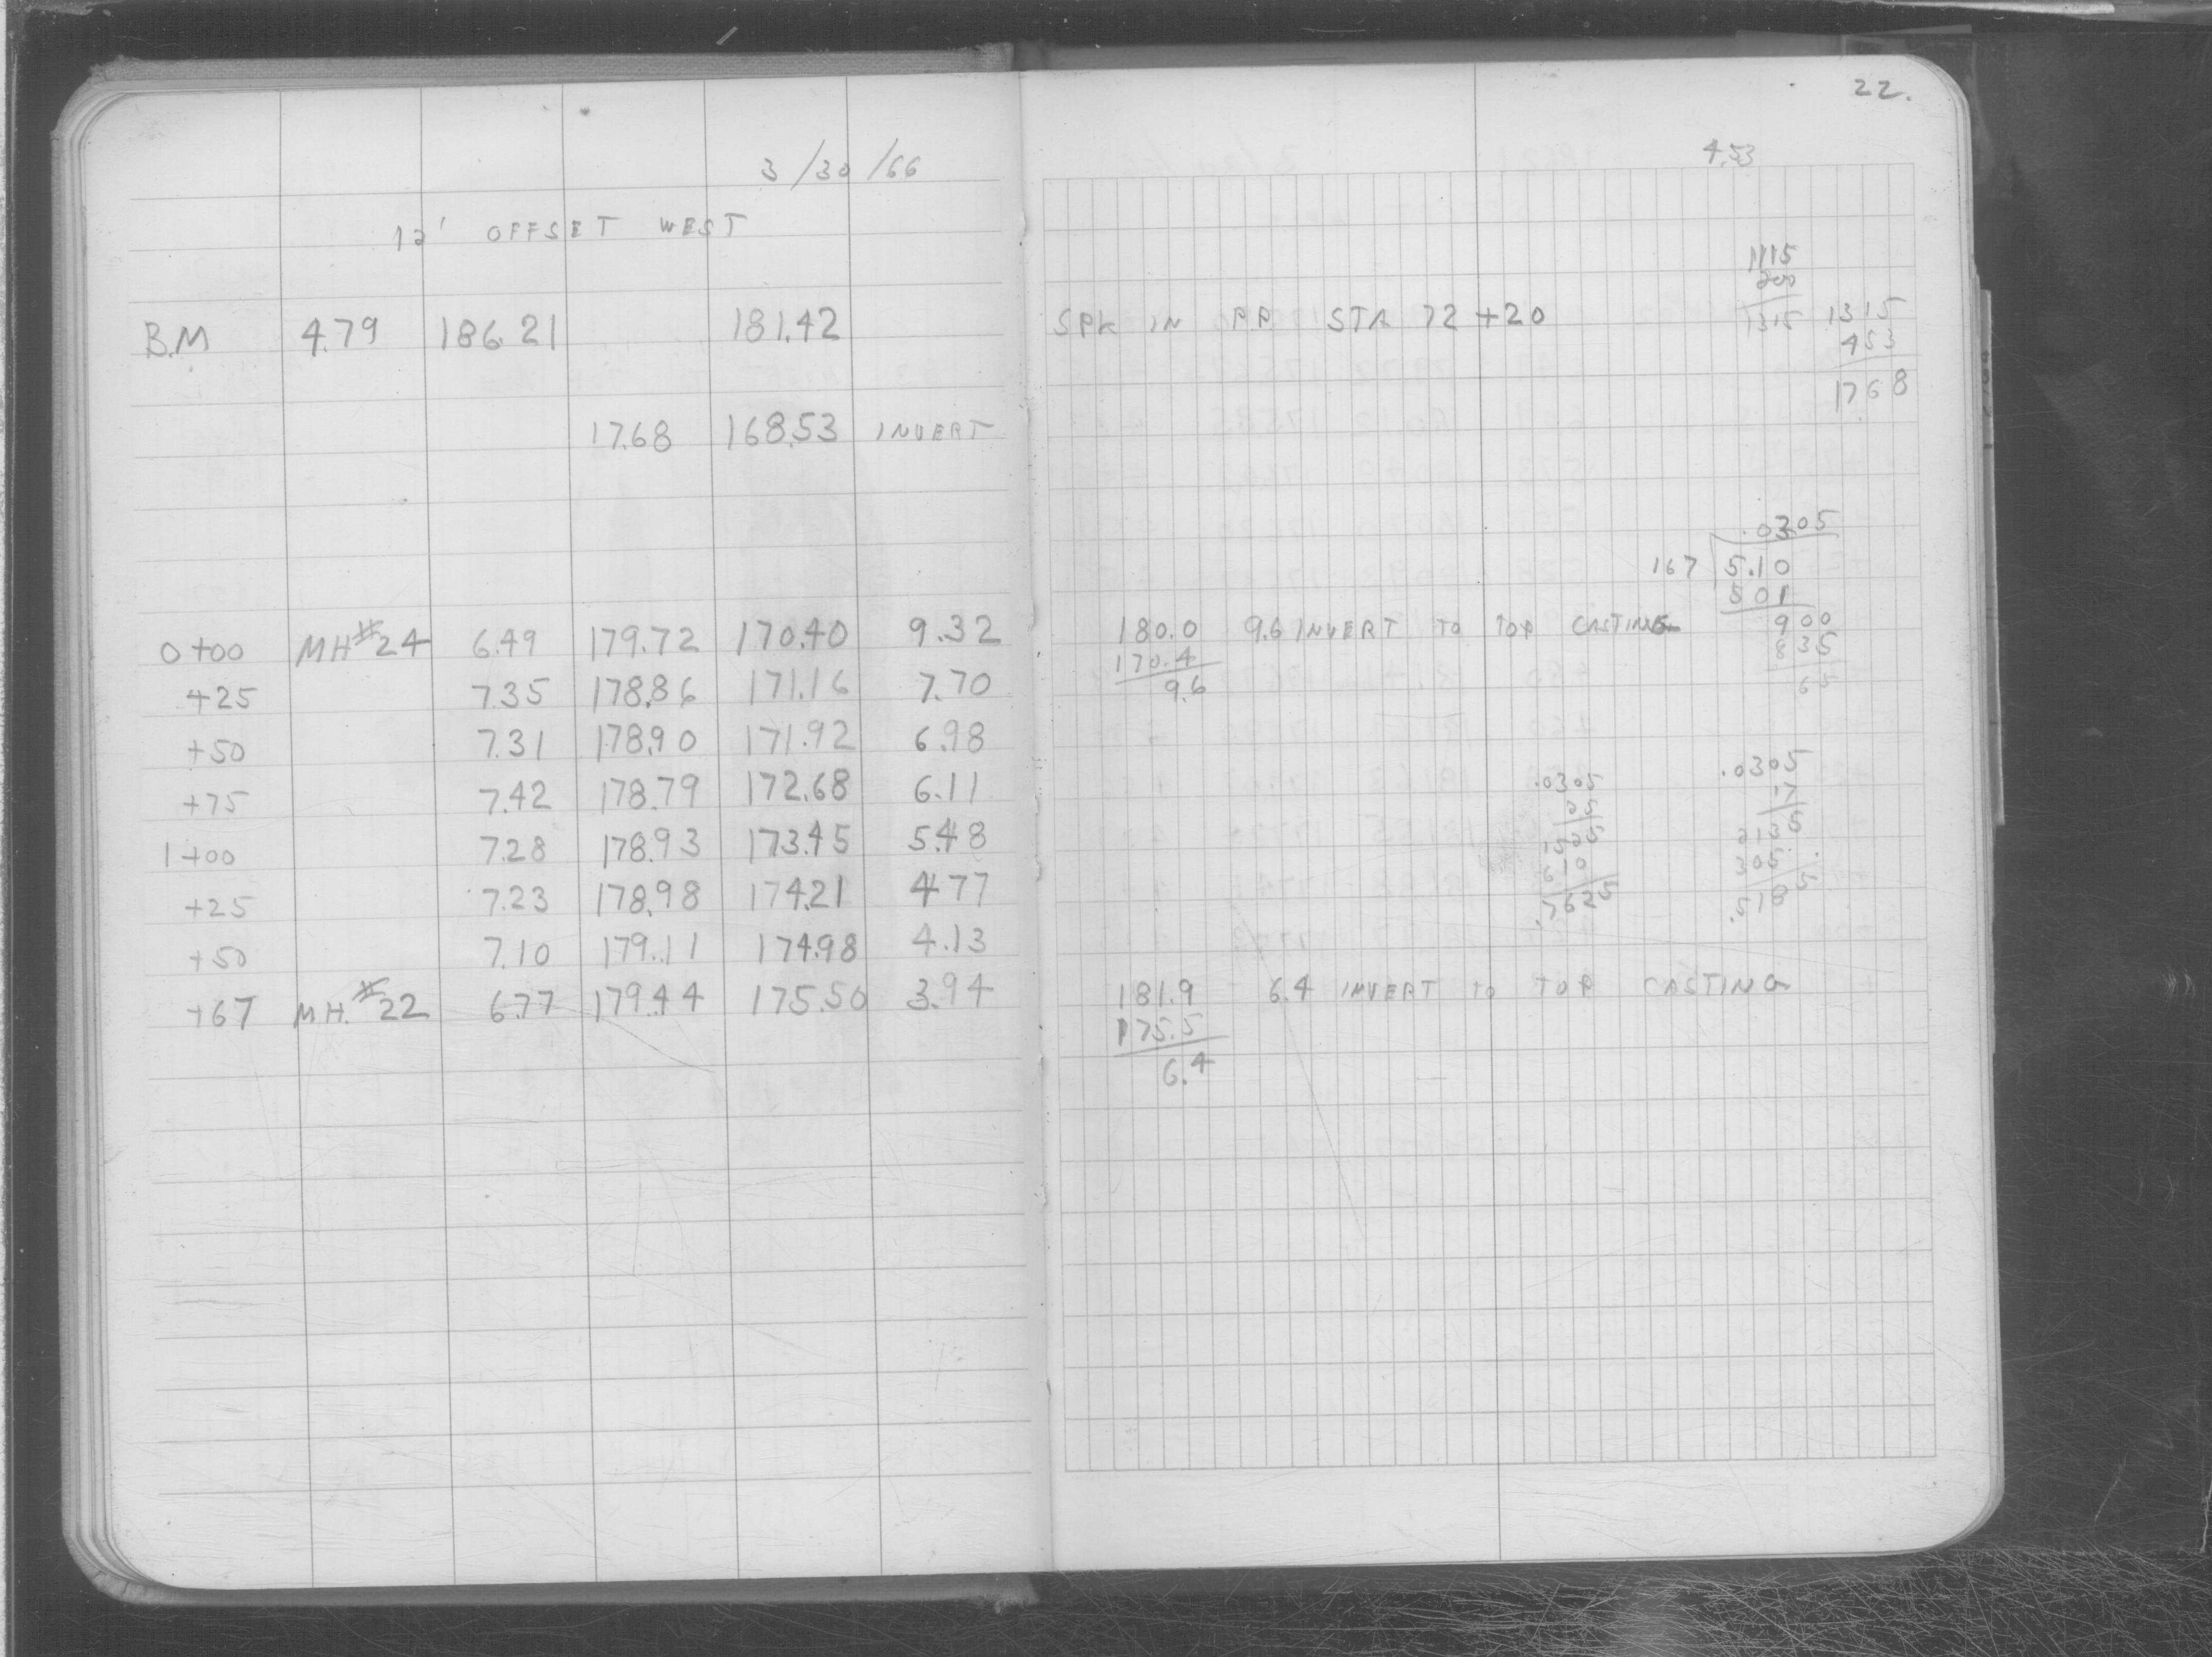 3/30/66
12' OFFSET WEST
B.M 4.79 186.21 181.42
17.68 168.53 INVERT
0+00 MH#24 6.49 179.72 170.40 9.32
+25 7.35 178.86 171.16 7.70
+50 7.31 178.90 171.92 6.98
+75 7.42 178.79 172.68 6.11
1+00 7.28 178.93 173.45 5.48
+25 7.23 178.98 174.21 4.77
+50 7.10 179.11 174.98 4.13
+67 MH.#22 6.77 179.44 175.50 3.94
22.
4.53
1115
200
1315
SPK IN PP STA 72+20
1315
453
1768
.0305
167 5.10
501
900
835
65
180.0 9.6 INVERT TO TOP CASTING
170.4
9.6
.0305
25
1525
610
.7625
.0305
17
2135
305
.5185
181.9 6.4 INVERT TO TOP CASTING
175.5
6.4